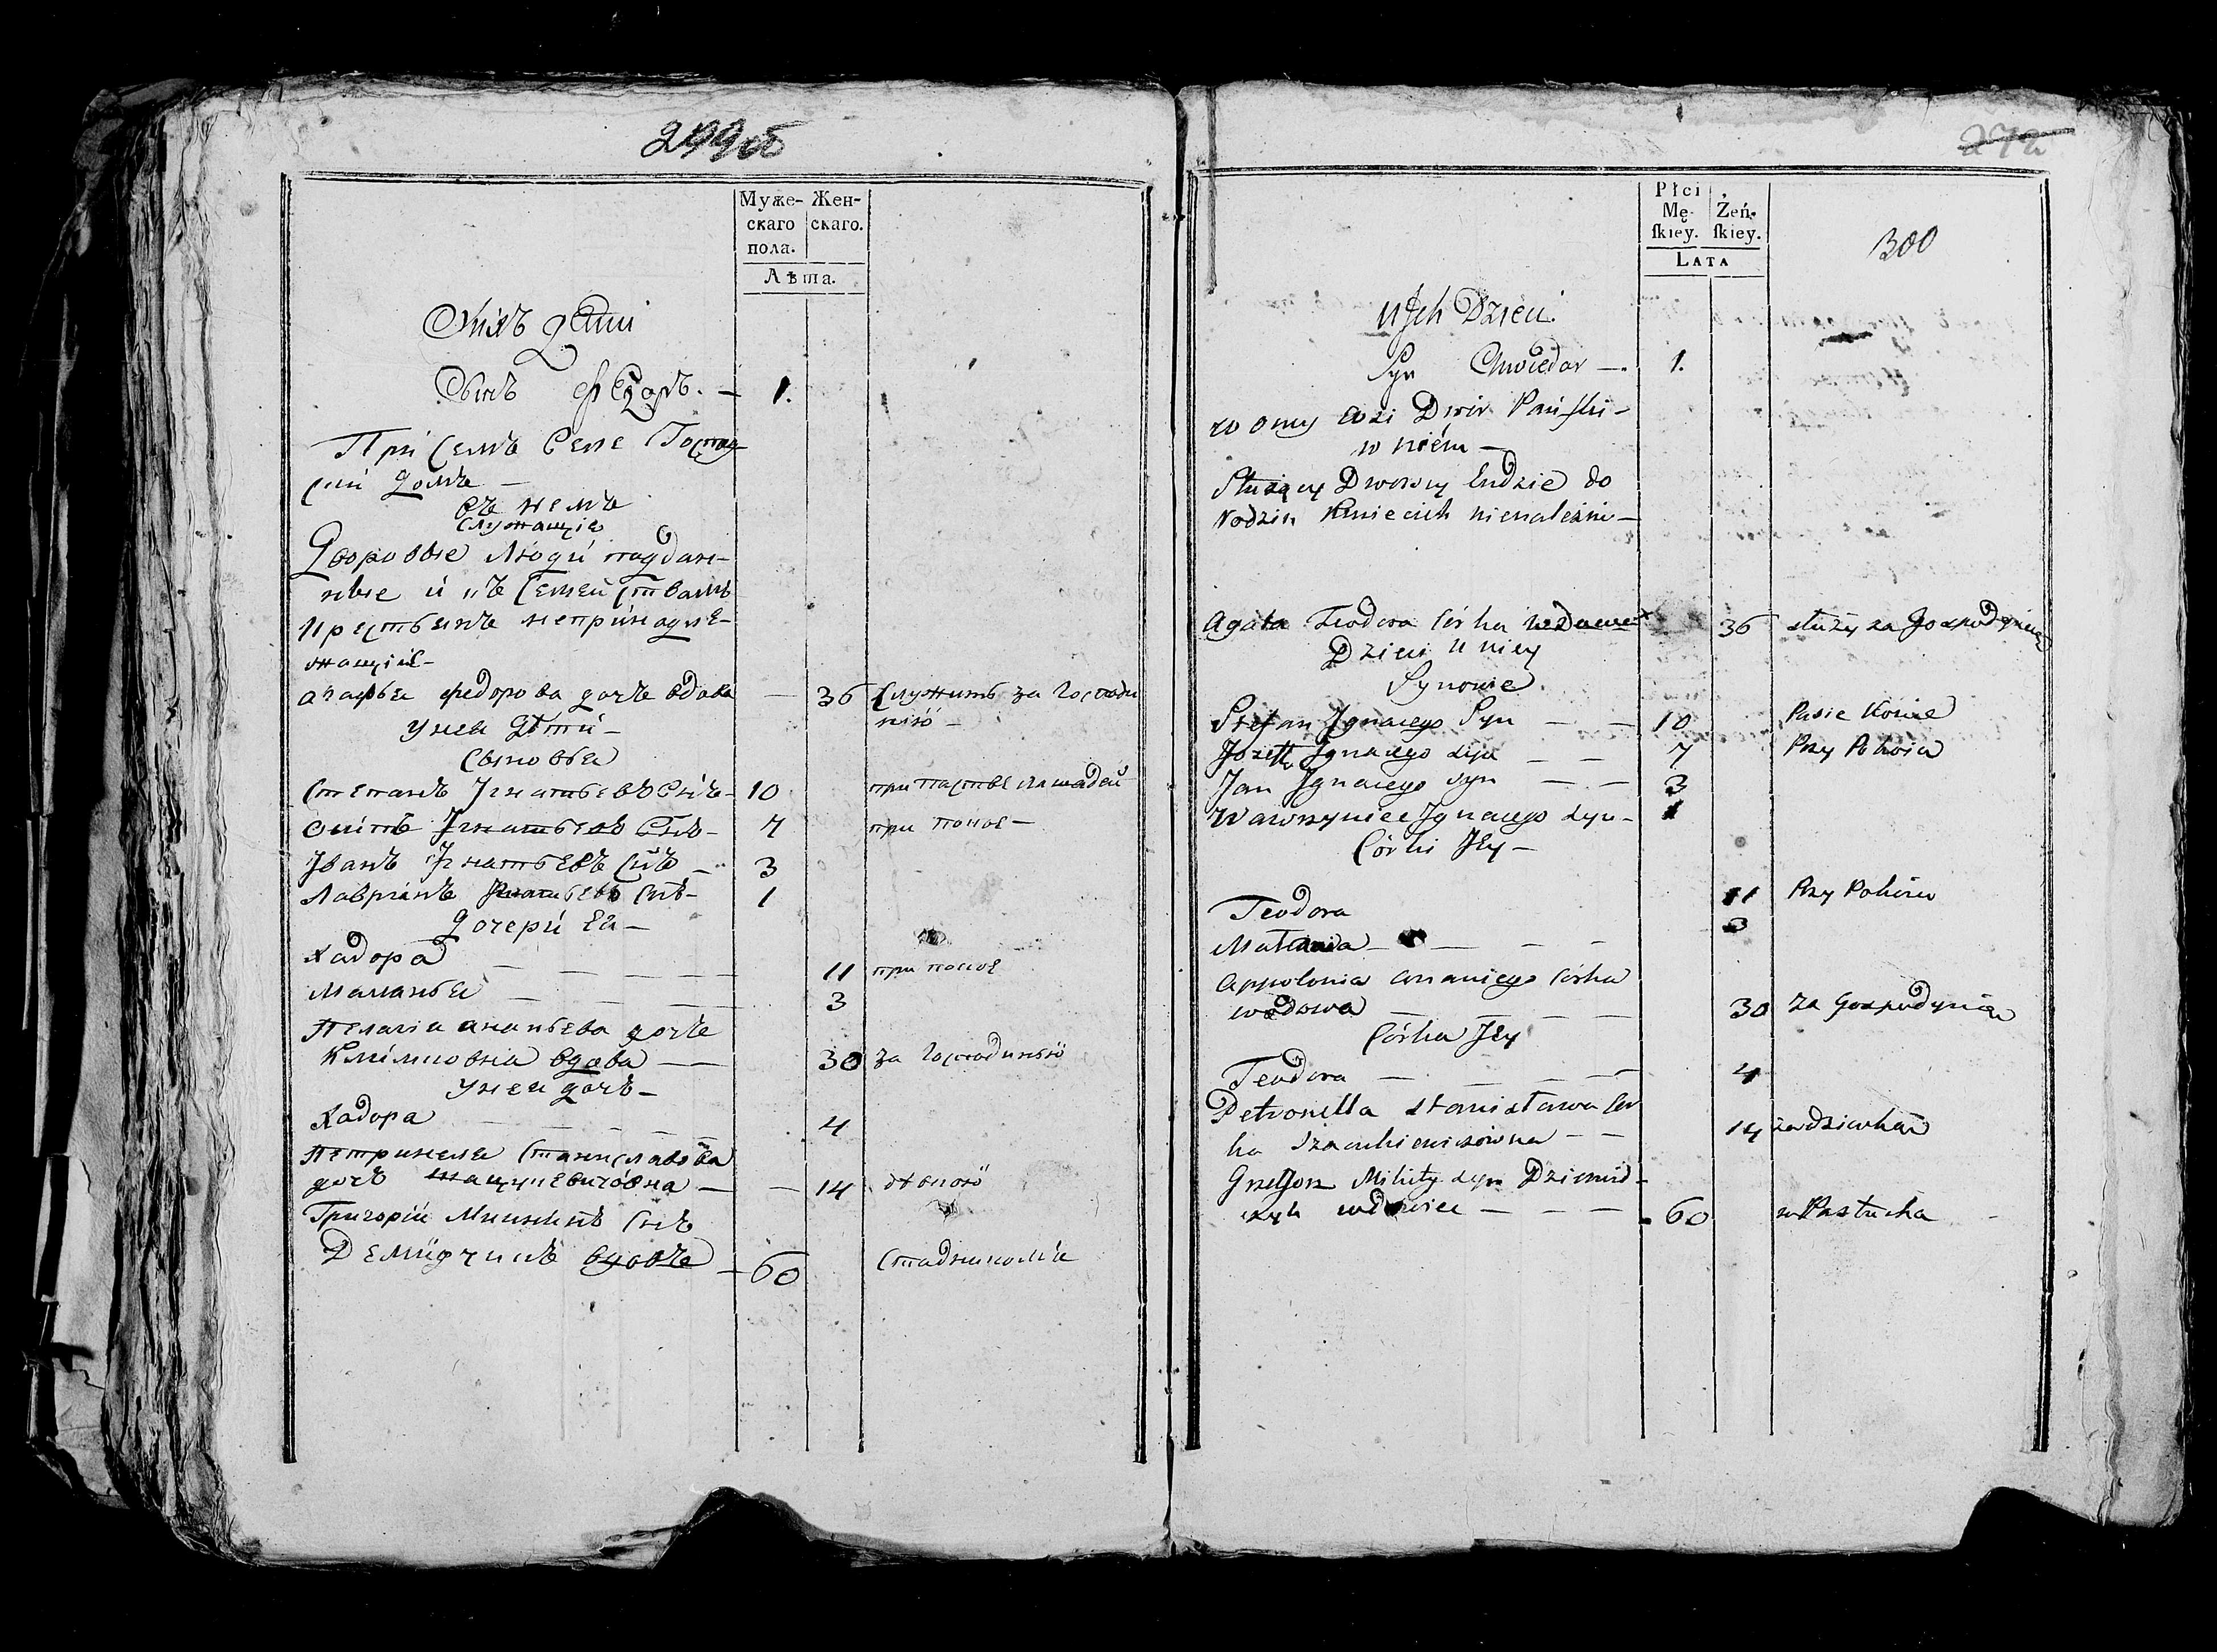 299об
Муже- Жен-
скаго скаго.
пола.
Лѣта.
У нихъ дети
Сынъ Федоръ. — 1.
При семъ Селе Господ
скій домъ —
въ немъ
служащіе
Дворовые люди поддан-
ные и къ семействамъ
крестьянъ непринадле-
жащіе —
Агафья Федорова дочь вдова — 36 служитъ за господи
нію —
У неи дѣти —
Сыновья
Степанъ Игнатьевъ Снъ — 10 при пастве лошадей
Осипъ Игнатьевъ Снъ — 7 при покое —
Иванъ Игнатьевъ Снъ — 3
Лавринъ Игнатьевъ Снъ — 1
Дочери еи —
Хадора — — — — 11 при покое
Маланья — — — 3
Пелагіа Ананьева дочь
Климковна вдова — — 30 за господинью
У неи дочь —
Хадора — — — — 4
Петринеля Станиславова
дочь — — 14 девкою
Григорій Микитъ Снъ
Демидчикъ вдовъ — 60 Стадникомъ
272
Płci
Mę- Żeń-
ſkiey. ſkiey.
LATA
300
U Jch Dzieci.
Syn Chwiedor —. 1.
w omy Wsi Dwor Pański —
w niém —
Służący Dworscy ludzie do
Rodzin Kmiecich nienależni —
Agata Teodora Córka wdowa 36 służy za Gospodynią
Dzieci u niey
Synowie
Stefan Jgnacego Syn — — 10 Pasie Konie
Jozeff Jgnacego syn — — 7 Przy Pokoiu
Jan Jgnacego syn — — 3
Wawrzyniec Jgnacego syn — 1
Córki Jey —
Teodora 11 Przy Pokoiu
Malania — — — — 3
Appolonia Ananiego Córka
wdowa — — — — 30 za Gospodynią
Córka Jey
Teodora — — — — 4
Petronella Stanisława Cór
ka — — 14 za dziewkę
Grzegorz Mikity syn Dziemid-
czyk wdowiec — — — 60 za Pastucha